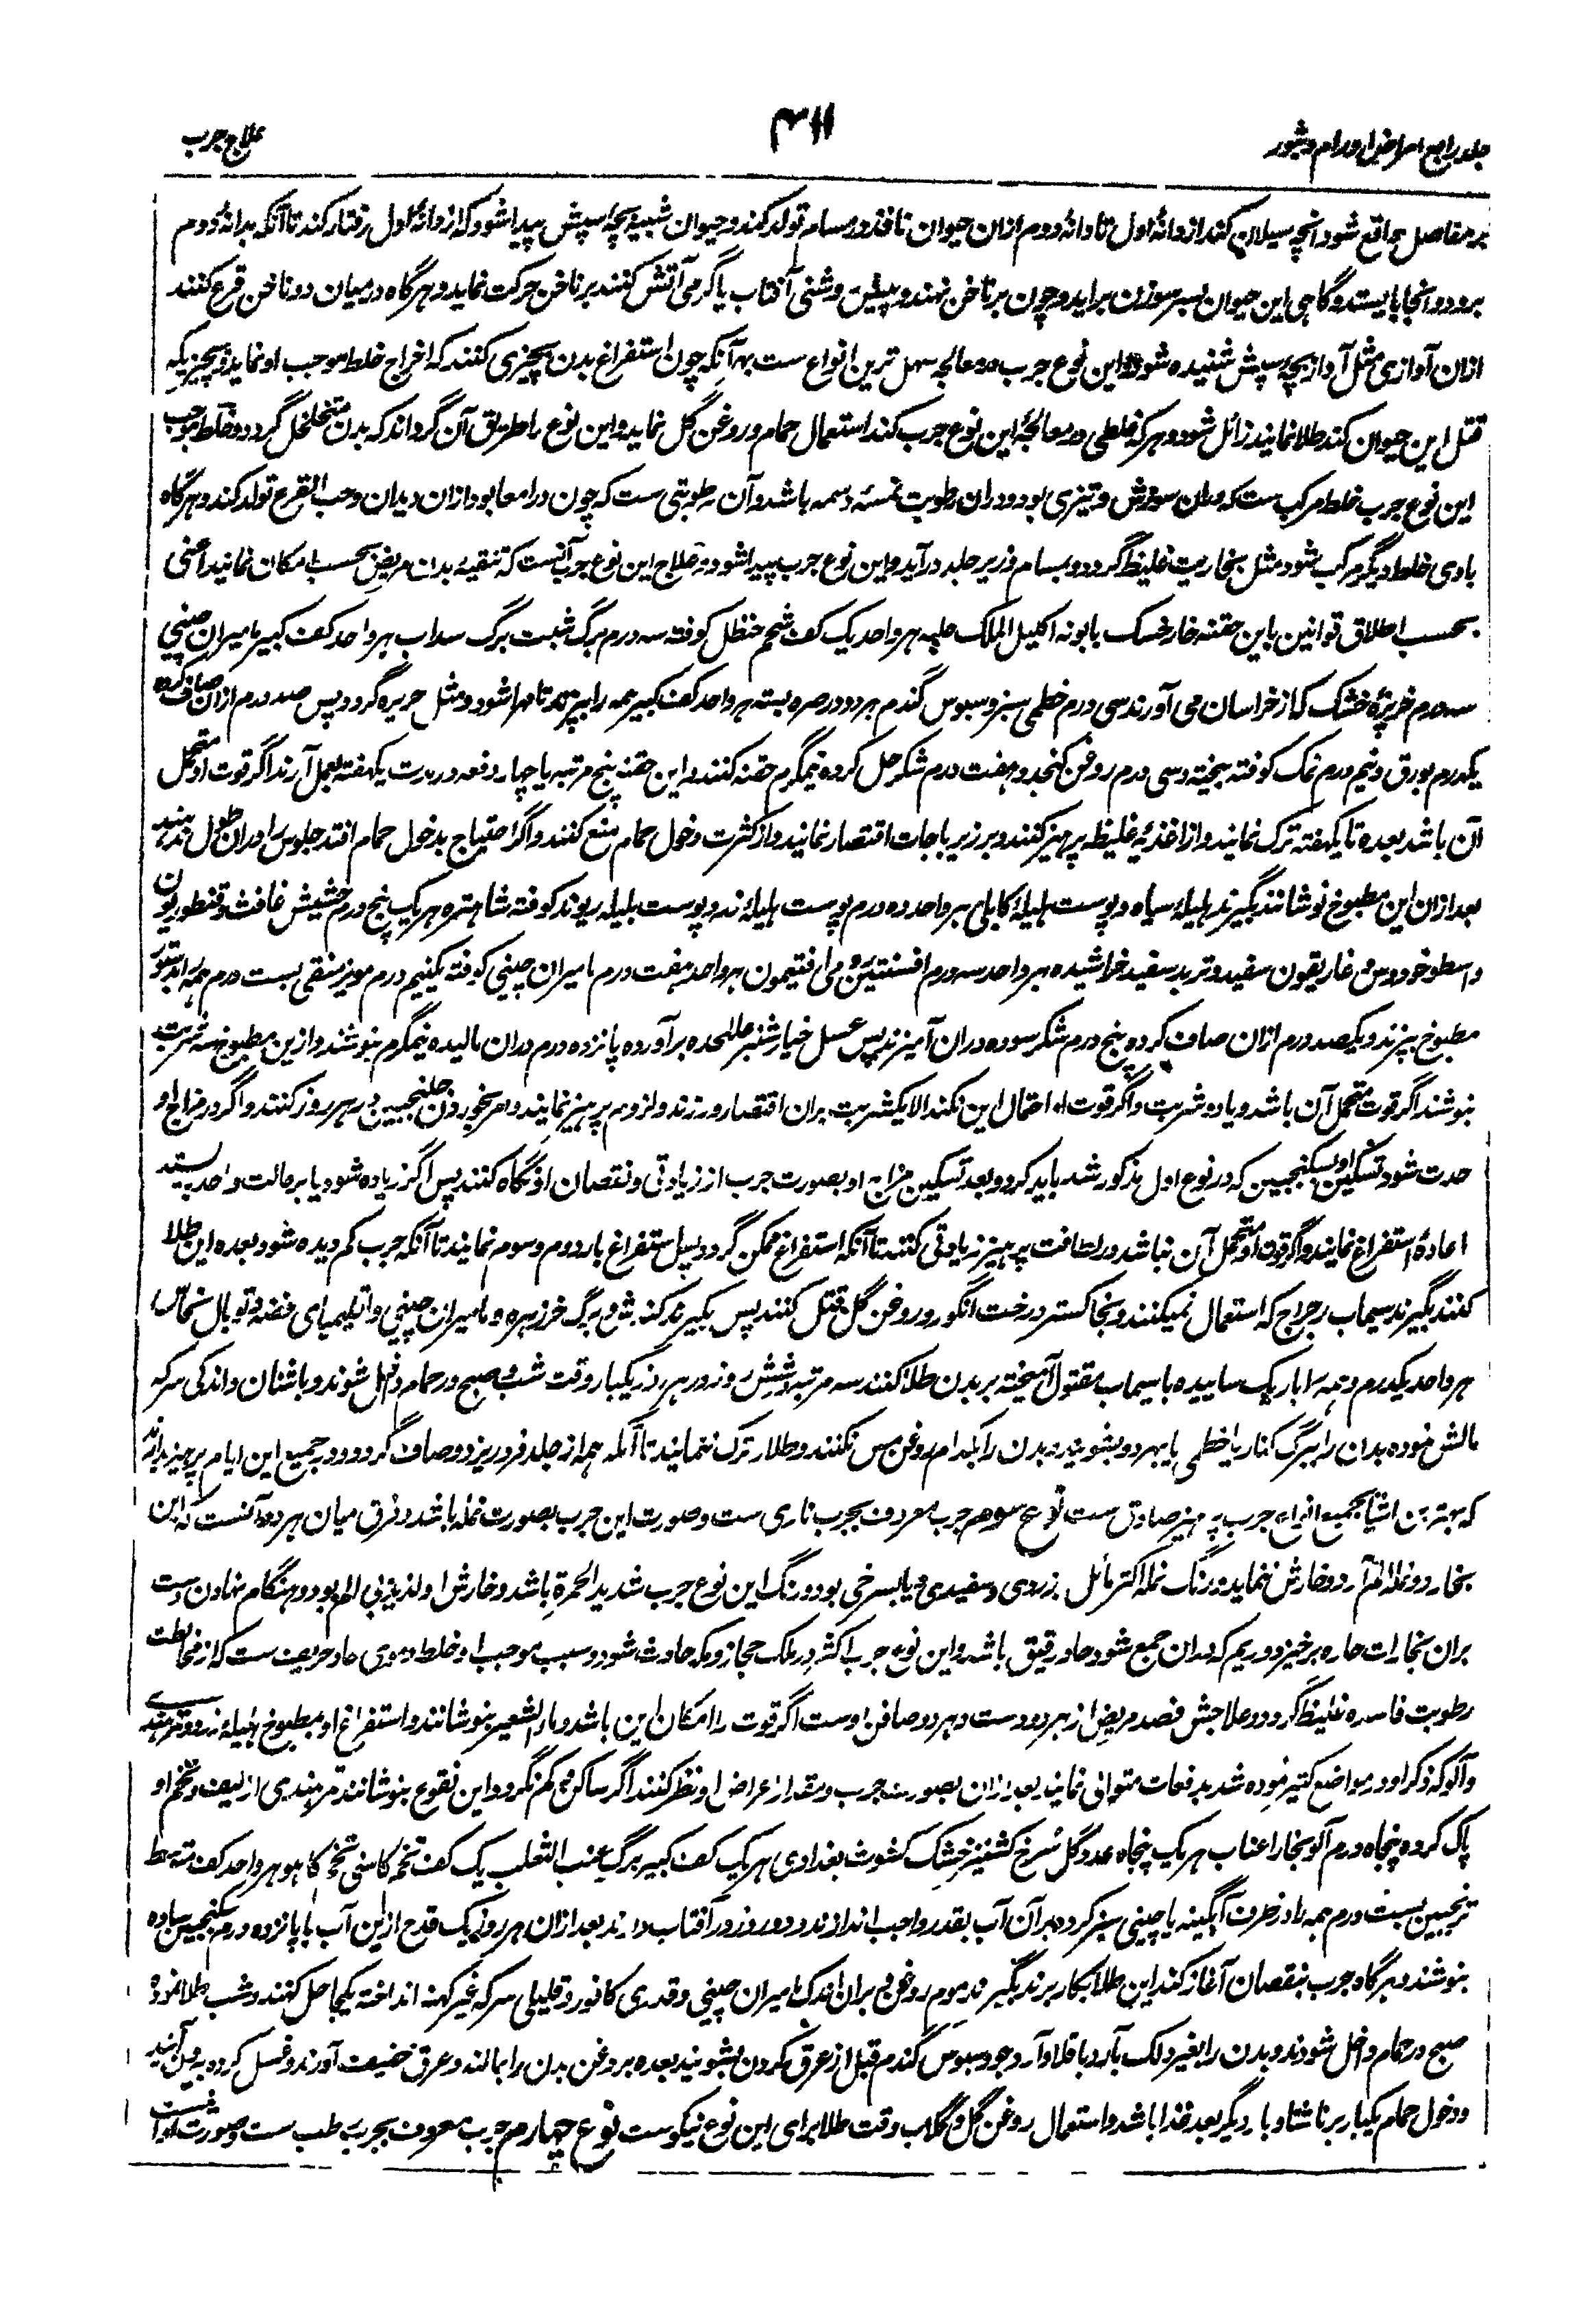 جلد رابع امراض اورام و بثور
۳۱۱
علاج جرب
بر مفاصل واقع شود و آنچه سیلان کند از دانۀ اول تا دانۀ دوم ازان حیوان نافذ در مسام تولد کند و حیوان شبیه بچۀ سپش پیدا شود که از دانۀ اول رفتار کند تا آنکه بدانۀ دوم
برود و آنجا بایستد و گاهی این حیوان بسر سوزن برآید و چون بر ناخن نهند و پیش روشنی آفتاب یا گرمی آتش کنند بر ناخن حرکت نماید و هرگاه درمیان دو ناخن قرع کنند
ازان آوازی مثل آواز بچۀ سپش شنیده شود و این نوع جرب در معالجه سهل ترین انواع ست بهر آنکه چون استفراغ بدن بچیزی کنند که اخراج خلط موجب او نماید و بچیزیکه
قتل این حیوان کند طلا نمایند زائل شود و هر که غلطی در معالجۀ این نوع جرب کند استعمال حمام و روغن گل نماید و این نوع را طریق آن گرداند که بدن متخلخل گردد و خلط موجب
این نوع جرب خلط مرکب ست که دران سوزش و تیزی بود و دران رطوبت دسمه باشد و آن رطوبتی ست که چون در امعا بود ازان دیدان و حب القرع تولد کند و هرگاه
بادی خلط دیگر مرکب شود مثل بخاریت غلیظ گردد و بمسام زیر جلد درآید و این نوع جرب پیدا شود و علاج این نوع جرب آنست که تنقیه بدن مریض بحسب امکان نمایند اعنی
بحسب اطلاق قوانین باین حقنه خارخسک بابونه اکلیل الملک حلبه هر واحد یک کف شحم حنظل کوفته سه درم برگ شبت برگ سداب هر واحد کف کبیر مامیران چینی
سه درم خربزۀ خشک که از خراسان می آورند سی درم خطمی سبز و سبوس گندم هر دو در صره بسته هر واحد کف کبیر همه را بپزند تا مهرا شود و مثل حریره گردد پس صد درم ازان صاف کرده
یکدرم بورق و نیم درم نمک کوفته بیخته و سی درم روغن کنجد و هفت درم شکر حل کرده نیمگرم حقنه کنند و این حقنه پنج مرتبه یا چهار دفعه در مدت یکهفته بعمل آرند اگر قوت او متحمل
آن باشد بعده تا یکهفته ترک نمایند و از اغذیه غلیظه پرهیز کنند و بر زیرباجات اقتصار نمایند و از کثرت دخول حمام منع کنند و اگر احتیاج بدخول حمام افتد جلوس را دران طول ندهند
بعد ازان این مطبوخ نوشانند بگیرند هلیلۀ سیاه و پوست هلیلۀ کابلی هر واحد ده درم پوست هلیلۀ زرد و پوست بلیله ریوند کوفته شاهتره هر یک پنج درم حشیش غافث و قنطوریون
و اسطوخودوس و غاریقون سفید و تربد سفید خراشیده هر واحد سه درم افسنتین رومی افتیمون هر واحد هفت درم مامیران چینی کوفته یکنیم درم مویز منقی بست درم همه را بدستور
مطبوخ بپزند و یکصد درم ازان صاف کرده پنج درم شکر سوده دران آمیزند پس عسل خیار شنبر علیحده برآورده پانزده درم دران مالیده نیمگرم بنوشند و ازین مطبوخ سه شربت
بنوشند اگر قوت متحمل آن باشد و یا دو شربت و اگر قوت او احتمال این نکند الا یکشربت بران اقتصار ورزند و لزوم پرهیز نمایند و امر بخوردن جلنجبین در هر روز کنند و اگر در مزاج او
حدت شود تسکین او بسکنجبین که در نوع اول مذکور شد باید کرد و بعد تسکین مزاج او بصورت جرب از زیادتی و نقصان او نگاه کنند پس اگر زیاده شود یا بر حالت واحد بیستد
اعادۀ استفراغ نمایند و اگر قوت او متحمل آن نباشد در لطافت پرهیز زیادتی کنند تا آنکه استفراغ ممکن گردد پس استفراغ بار دوم و سوم نمایند تا آنکه جرب کم دیده شود بعده این طلا
کنند بگیرند سیماب رجراج که استعمال نمیکنند و بخاکستر درخت انگور و روغن گل قتل کنند پس بگیرند کندش و برگ خرزهره و مامیران چینی و اقلیمیای فضه و توبال نحاس
هر واحد یکدرم و همه را باریک ساییده با سیماب مقتول آمیخته بر بدن طلا کنند سه مرتبه و شش روز در هر روز یکبار وقت شب و صبح در حمام داخل شوند و باشنان و اندکی سرکه
مالش نموده بدان را ببرگ کنار یا خطمی یا بهر دو بشویند و بدن را بکدام روغن مس نکنند و طلا را ترک ننمایند تا آنکه همه از جلد فرو ریزد و صاف گردد و در جمیع این ایام پرهیز دارند
که بهترین اشیا بجمیع انواع جرب پرهیز صادق ست نوع سوم جرب معروف بجرب ناری ست و صورت این جرب بصورت نمله باشد و فرق میان هر دو آنست که این
بخارد و نمله الم آرد و خارش ننماید و رنگ نمله اکثر مائل بزردی و سفیدی و یا بسرخی بود و رنگ این نوع جرب شدید الحمرة باشد و خارش او لذیذ بی الم بود و هنگام نهادن دست
بران بخارات حاره برخیزد و ریم که دران جمع شود حاد رقیق باشد و این نوع جرب اکثر در ملک حجاز و مکه حادث شود و سبب موجب او خلط دموی حاد حریف ست که از مخالطت
رطوبت فاسده غلیظ گردد و علاجش فصد مریض از هر دو دست و هر دو صافن اوست اگر قوت را امکان این باشد و ماء الشعیر بنوشانند و استفراغ او بمطبوخ هلیلۀ زرد و تمر هندی
و آلو که ذکر او در مواضع کثیر نموده شد بدفعات متوالی نمایند بعد ازان بصورت جرب و مقدار اعراض او نظر کنند اگر ساکن و کم نگردد این نقوع بنوشانند تمر هندی از لیف و تخم او
پاک کرده پنجاه درم آلو بخارا عناب هر یک پنجاه عدد گل سرخ کشنیز خشک کشوث بغدادی هر یک کف کبیر برگ عنب الثعلب یک کف تخم کاسنی تخم کاهو هر واحد کف متوسط
ترنجبین بست درم همه را در ظرف آبگینه یا چینی سبز کرده بران آب بقدر واجب اندازند و دو روز در آفتاب دارند بعد ازان هر روز یک قدح ازین آب با پانزده درم سکنجبین ساده
بنوشند و هرگاه جرب بنقصان آغاز کند این طلا بکار برند بگیرند موم روغن و بران اندک مامیران چینی و قدری کافور و قلیلی سرکه غیر کهنه انداخته یکجا حل کنند و شب طلا نموده
صبح در حمام داخل شوند و بدن را بغیر دلک بآرد باقلا و آرد جو و سبوس گندم قبل از عرق کردن بشویند بعده بروغن بدن را بمالند و عرق خفیف آورند و غسل کرده بیرون آیند
و دخول حمام یکبار بر ناشتا و بار دیگر بعد غذا باشد و استعمال روغن گل و گلاب وقت طلا برای این نوع نیکوست نوع چهارم جرب معروف بجرب طب ست و صورت او آنست